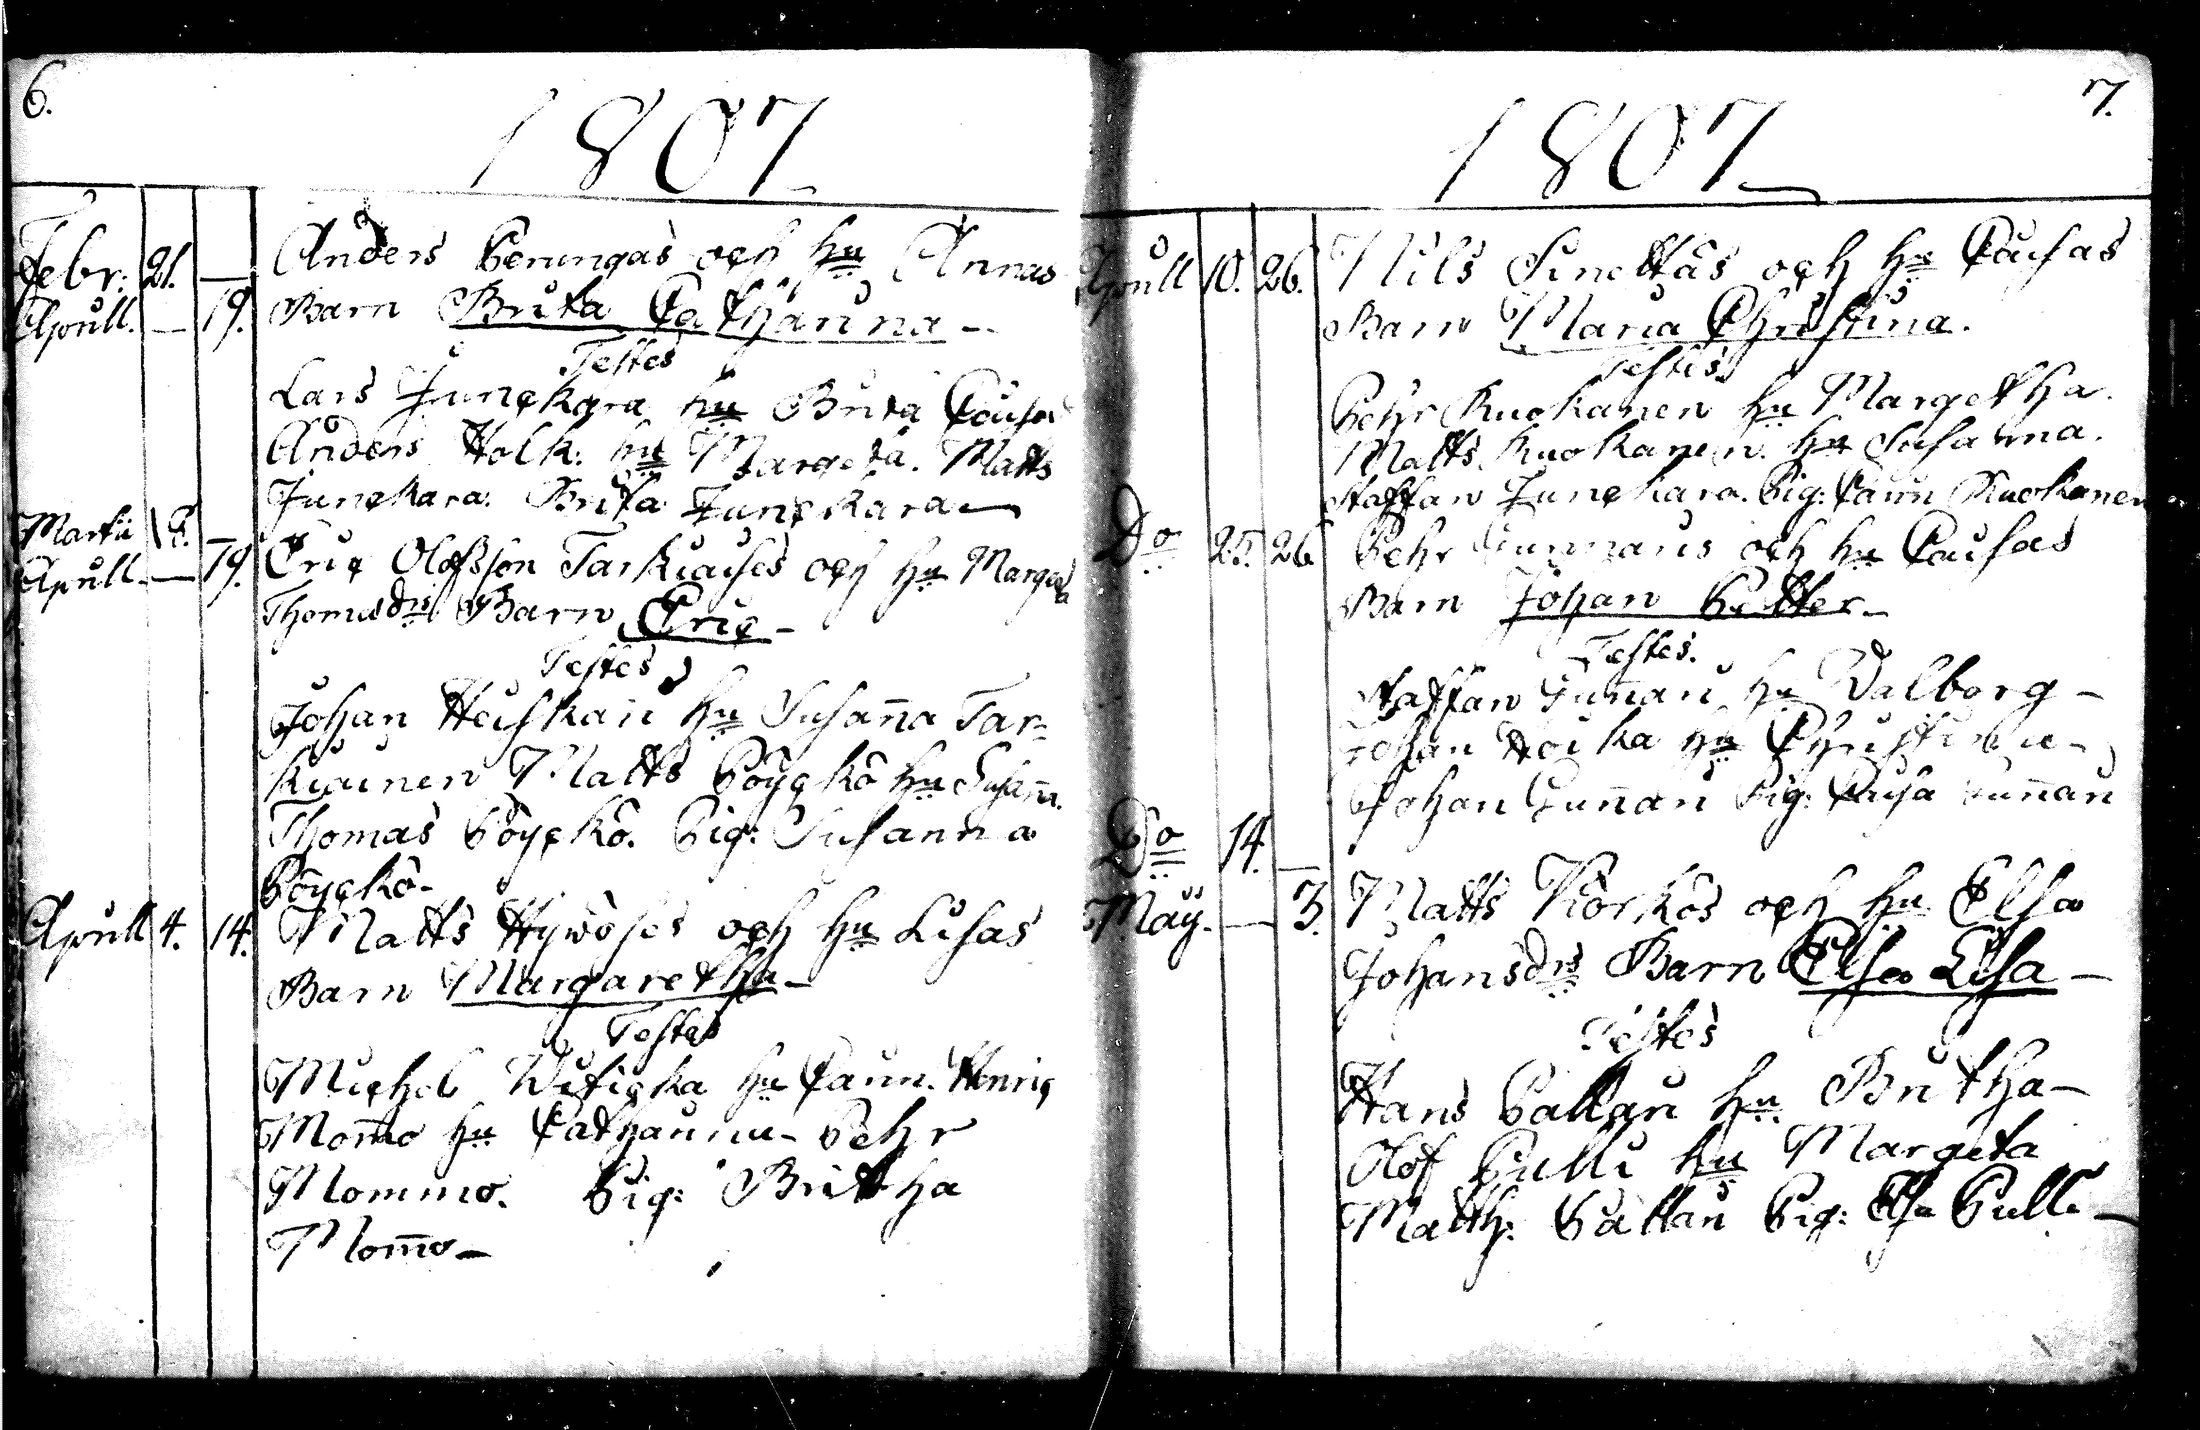 6.
1807
Febr: 21. — Anders Perungas och hu Annas
Aprill. — 19. Barn Brita Catharina —
Testes
Lars Junckara hu Brita Caisa
Anders Holk: hu Margeta. Matts
Junckara. Brita Junckara —
Martii —
Aprill — 19. Eric Olofsson Tarkiaises och hu Margeta
Thomædrs Barn Eric —
Testes
Johan Heiskari hu Susan̄a Tar=
kiainen Matts Pöyckö hu Susan̄a.
Thomas Pöyckö. Pig: Susanna
Pöyckö —
Aprill 4. 14. Matts Hywöses och hu Lisas
Barn Margaretha —
Testes
Michel Witicka hu Carin. Henric
Mom̄o hu Catharina — Pehr
Mommo. Pig: Britha
Mom̄o —
7.
1807
Aprill 10. 26. Nils Sinettäs och hu Caisas
Barn Maria Christina.
Testes
Pehr Kuokanen hu Margetha.
Matts Kuokanen. hu Susanna.
Staffan Junckara. Pig: Carin Kuokanen
Do 25. 26 Pehr Gunnaris och hu Caisas
Barn Johan Petter —
Testes.
Staffan Gun̄ari hu Walborg —
Johan Hoika hu Christina —
Johan Gun̄ari Pig: Caisa Gun̄ari
Do 14. —
May. — 3. Matts Körkös och hu Elsa
Johansdrs Barn Elsa Lisa —
Testes
Hans Pallari hu Britha —
Olof Pulli hu Margeta
Matth: Pallari Pig: Elsa Pulli —